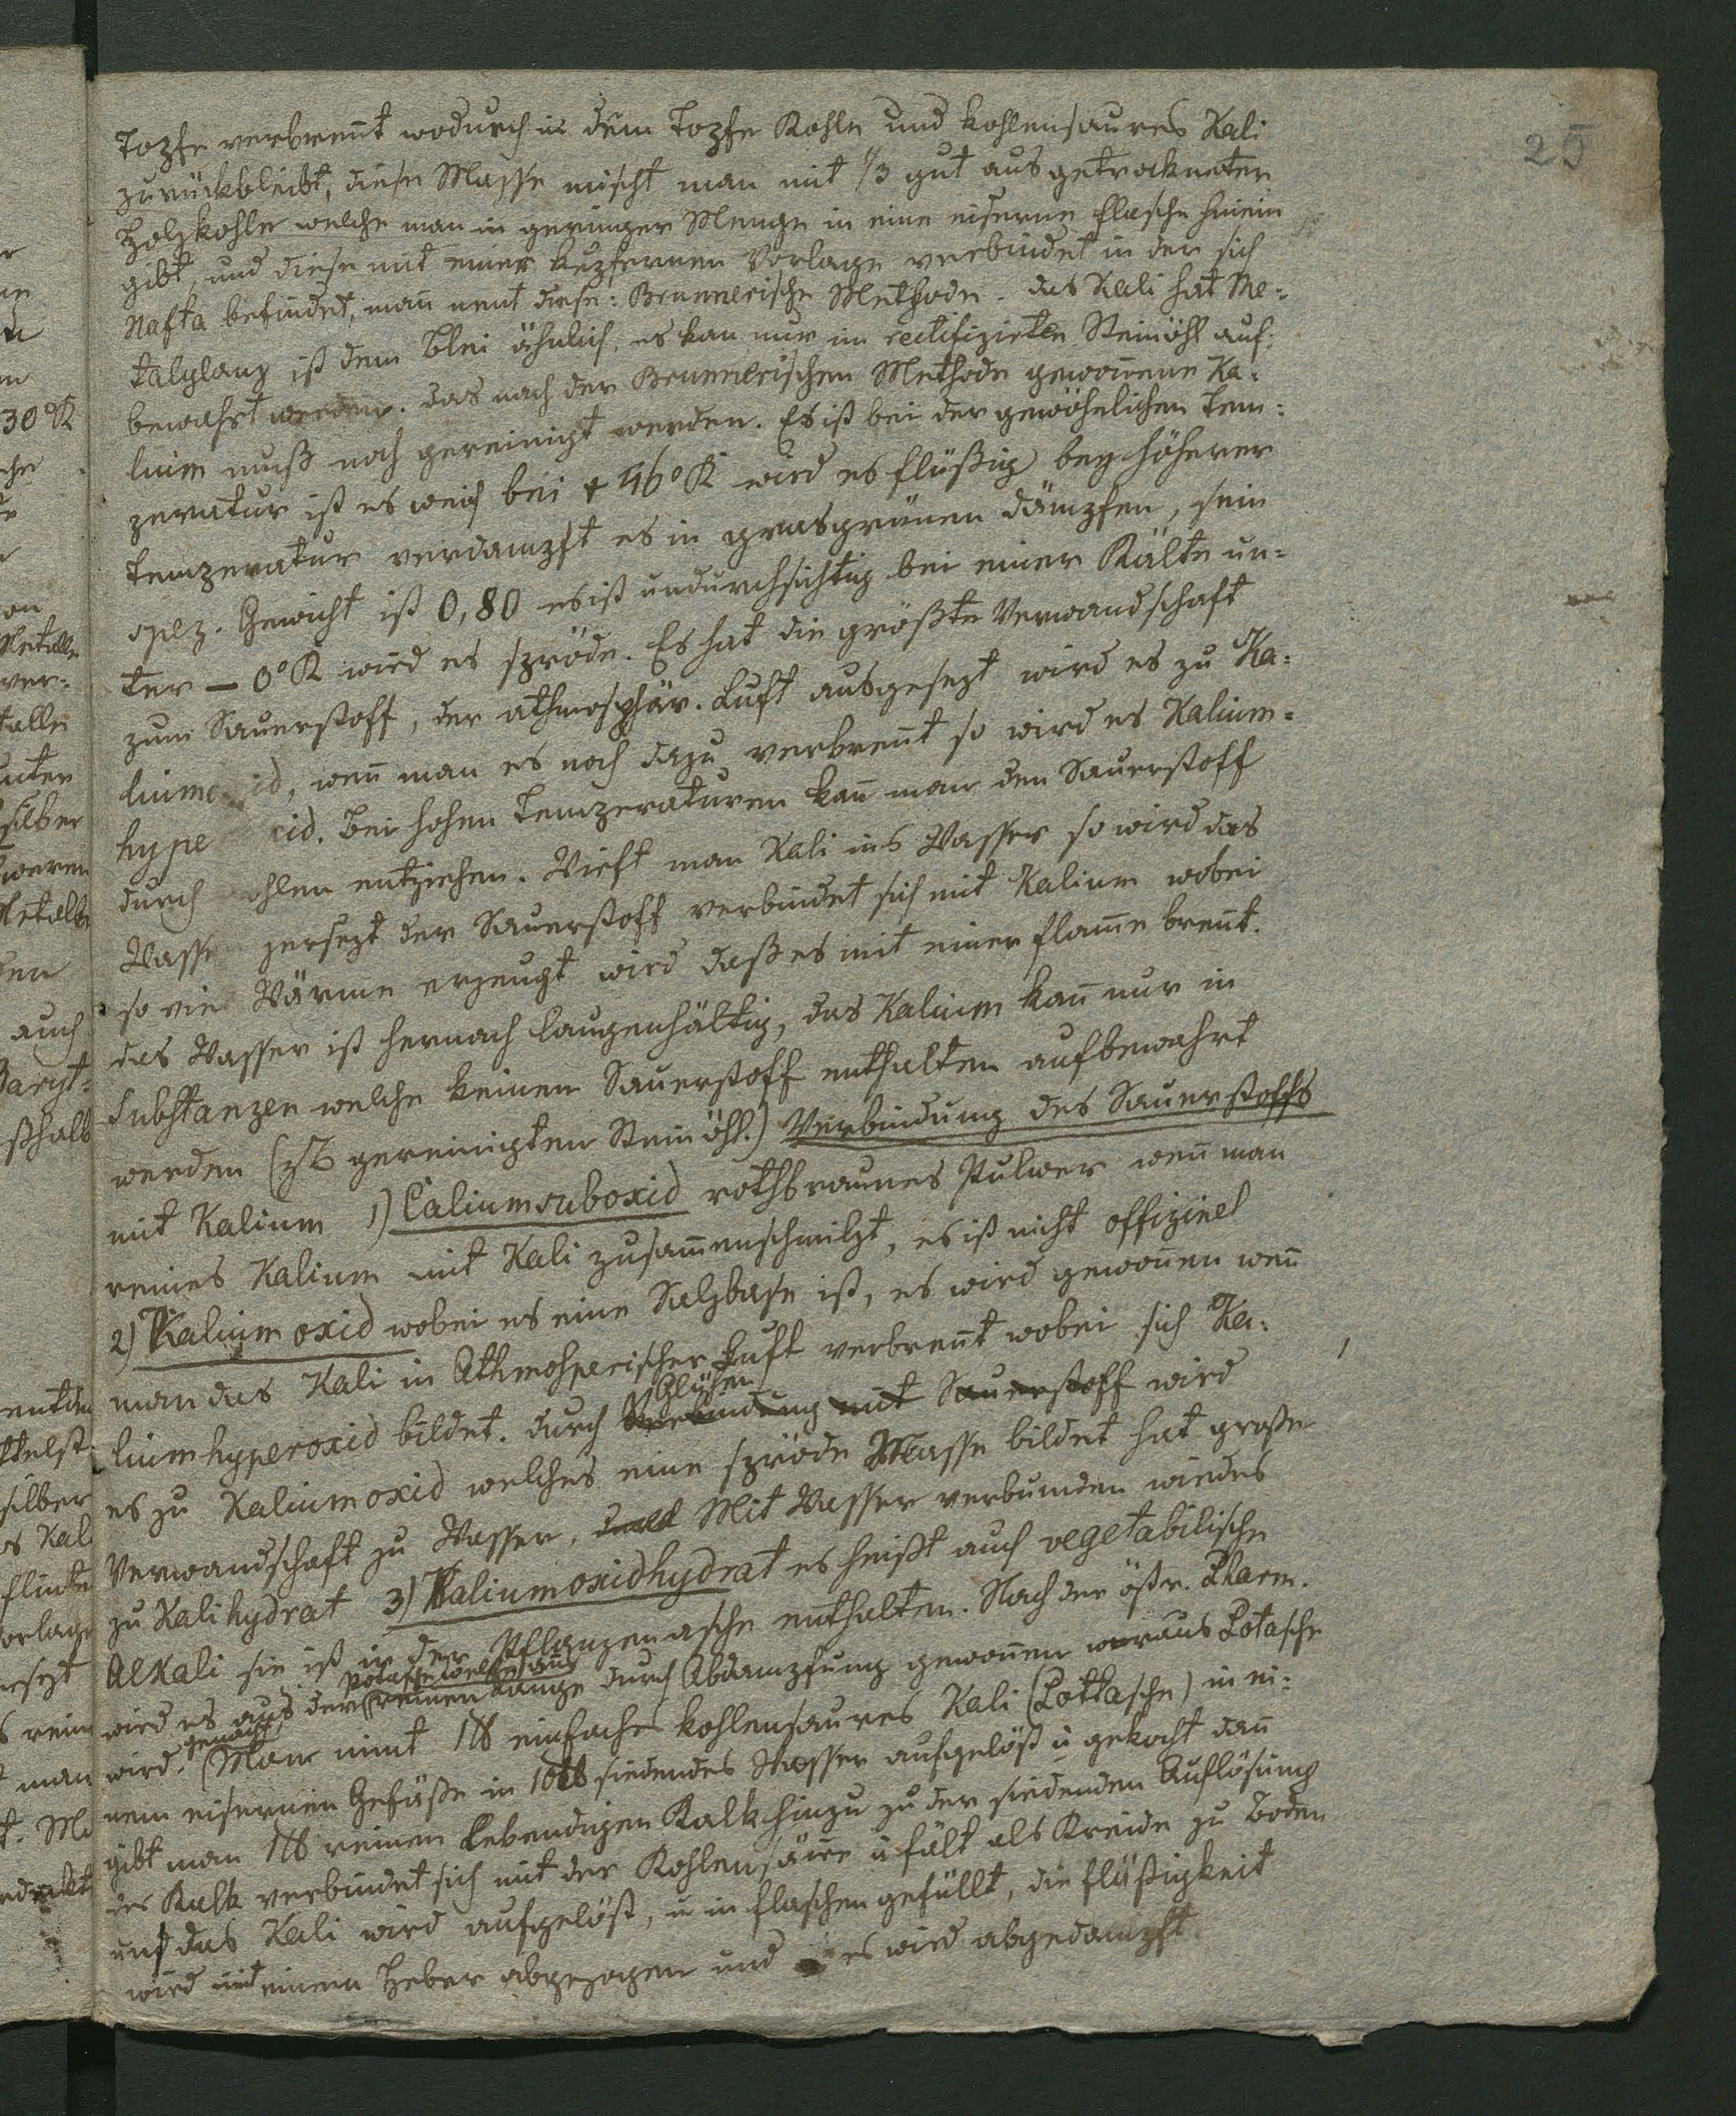 25
Topfe verbrennt wodurch in dem Topfe Kohle und kohlensaures Kali
zurückbleibt, diese Masse mischt man mit 1/3 gut ausgetrockneter
Holzkohle welche man in geringer Menge in eine eiserne Flasche hinein
gibt, und diese mit einer kupfernen Vorlage verbindet in der sich
Nafta befindet, man̄ nent diese: Brunnerische Methode. das Kali hat Me=
talglanz ist dem Blei ähnlich, es kan nur im rectifizirten Steinöhl auf=
bewahrt werden. das nach der Brunnerischen Methode gewon̄ene Ka=
lium muß noch gereinigt werden. Es ist bei der gewöhnlichen Tem=
peratur ist es weich bei + 46° R wird es flüßig bey höherer
Temperatur verdampft es in grasgrünen Dämpfen, sein
spez. Gewicht ist 0,80 es ist undurchsichtig bei einer Kälte un=
ter – 0° R wird es spröde. Es hat die größte Verwandschaft
zum Sauerstoff, der athmosphär. Luft ausgesezt wird es zu Ka=
liumo id, wen̄ man es noch dazu verbren̄t so wird es Kalium=
hype xid. Bei hohen Temperaturen kan̄ man den Sauerstoff
durch ohlen entziehen. Wirft man Kali ins Wasser so wird das
Wasse zersezt der Sauerstoff verbindet sich mit Kalium wobei
so vie Wärme erzeugt wird daß es mit einer Flam̄e bren̄t.
das Wasser ist hernach laugenhältig, das Kalium kan̄ nur in
Substanzen welche keinen Sauerstoff enthalten aufbewahrt
werden (zB gereinigten Steinöhl.) Verbindung des Sauerstoffs
mit Kalium 1) Caliumsuboxid rothbraunes Pulver wen̄ man
reines Kalium mit Kali zusam̄enschmilzt, es ist nicht offizinel
2) Kalium oxid wobei es eine Salzbase ist, es wird gewon̄en wen̄
man das Kali in Athmosperischer Luft verbren̄t wobei sich Ka=
liumhyperoxid bildet. durch Verbindung mit Sauerstoff wird
Glühen
es zu Kaliumoxid welches eine spröde Masse bildet hat große
Verwandschaft zu Wasser, Mit Wasser verbunden wird es
zu Kalihydrat 3) Kaliumoxidhydrat es heißt auch vegetabilische
Alkali sie ist in der Pflanzenasche enthalten. Nach der östr. Pharm.
Potasche welche aus
wird es aus der reinen Lauge durch Abdampfung gewon̄en woraus Potasche
gemacht
wird. (Man nimt 1 ℔ einfaches kohlensaures Kali (Pottasche) in ei=
nem eisernen Gefäße in 10 ℔ siedendes Wasser aufgelöst u gekocht dan̄
gibt man 1 ℔ reinen lebendigen Kalk hinzu zu der siedenden Auflösung
der Kalk verbindet sich mit der Kohlensäure u fält als Kreide zu Boden
und das Kali wird aufgelöst, u in Flaschen gefüllt, die Flüßigkeit
wird mit einem Heber abgezogen und es wird abgedampft